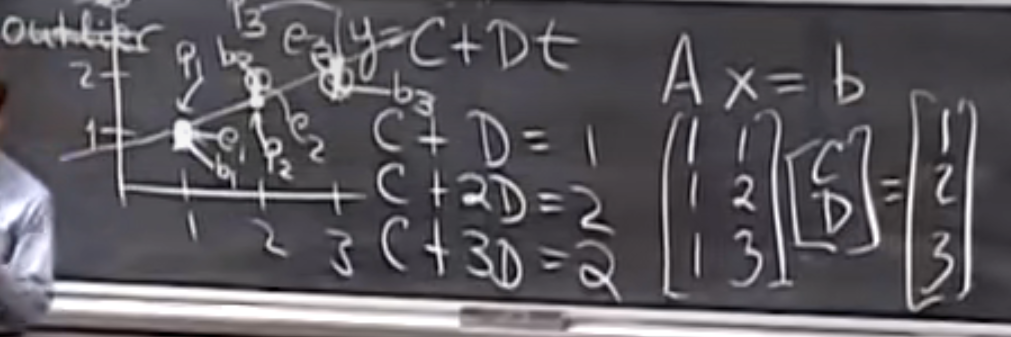 outlier
p3 e3 y=C+Dt
2 p1 b2 b3
1 e1 p2 e2
b1
1 2 3
C + D = 1
C + 2D = 2
C + 3D = 2
A x = b
[1 1] [C] = [1]
[1 2] [D] [2]
[1 3] [3]